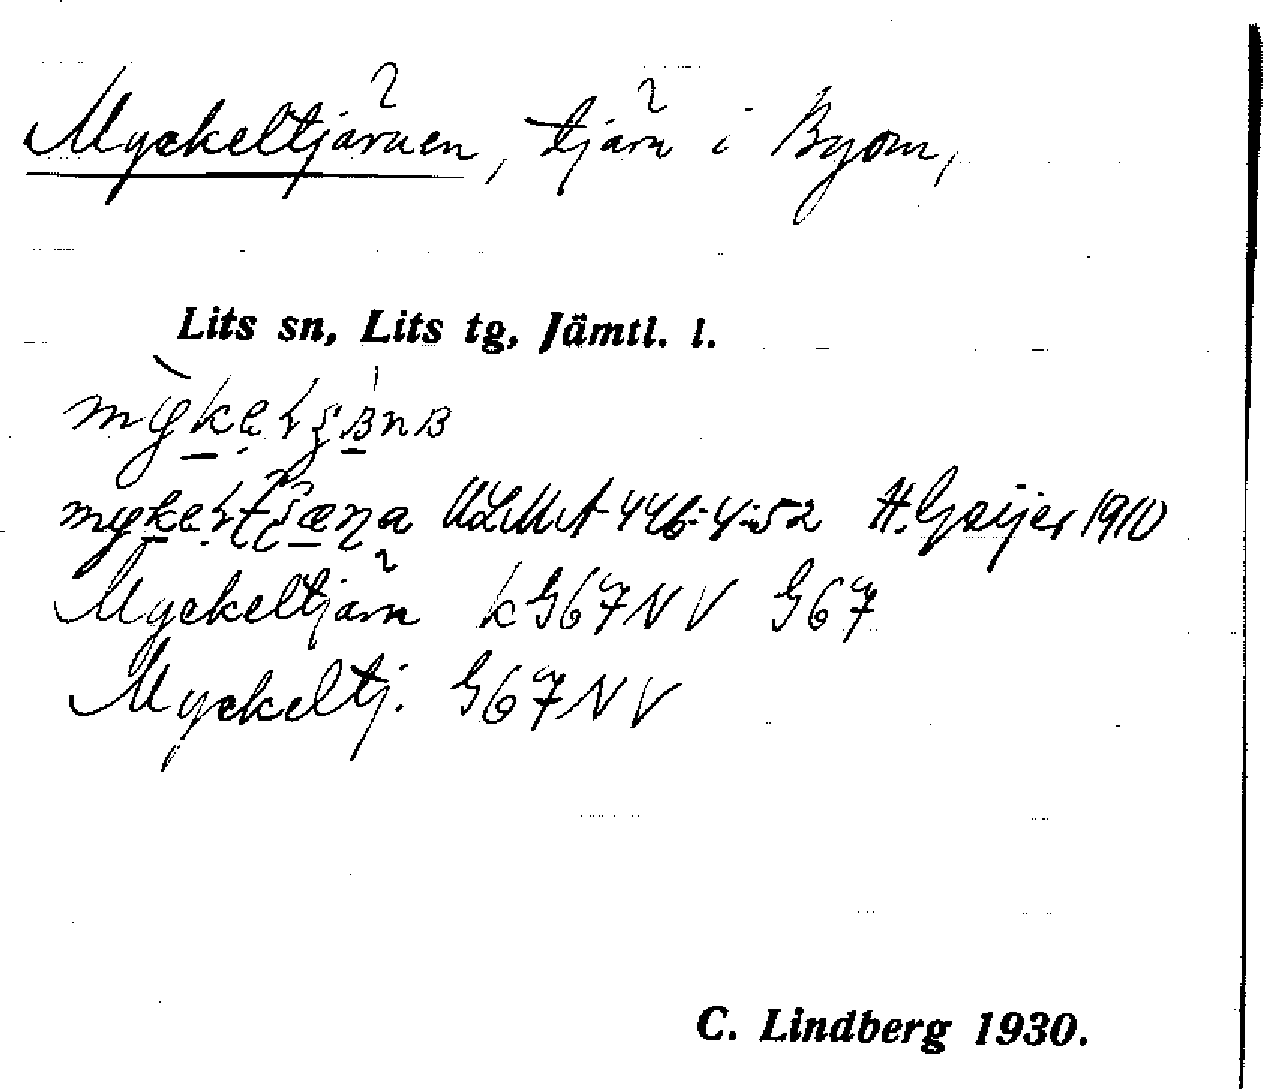 Myckeltjärnen, tjärn i Byom,
Lits sn, Lits tg, Jämtl. l.
ULMA 446:4:52 H. Geijer 1910
Myckeltjärn k G67NV G67
Myckeltj. G67NV
C. Lindberg 1930.